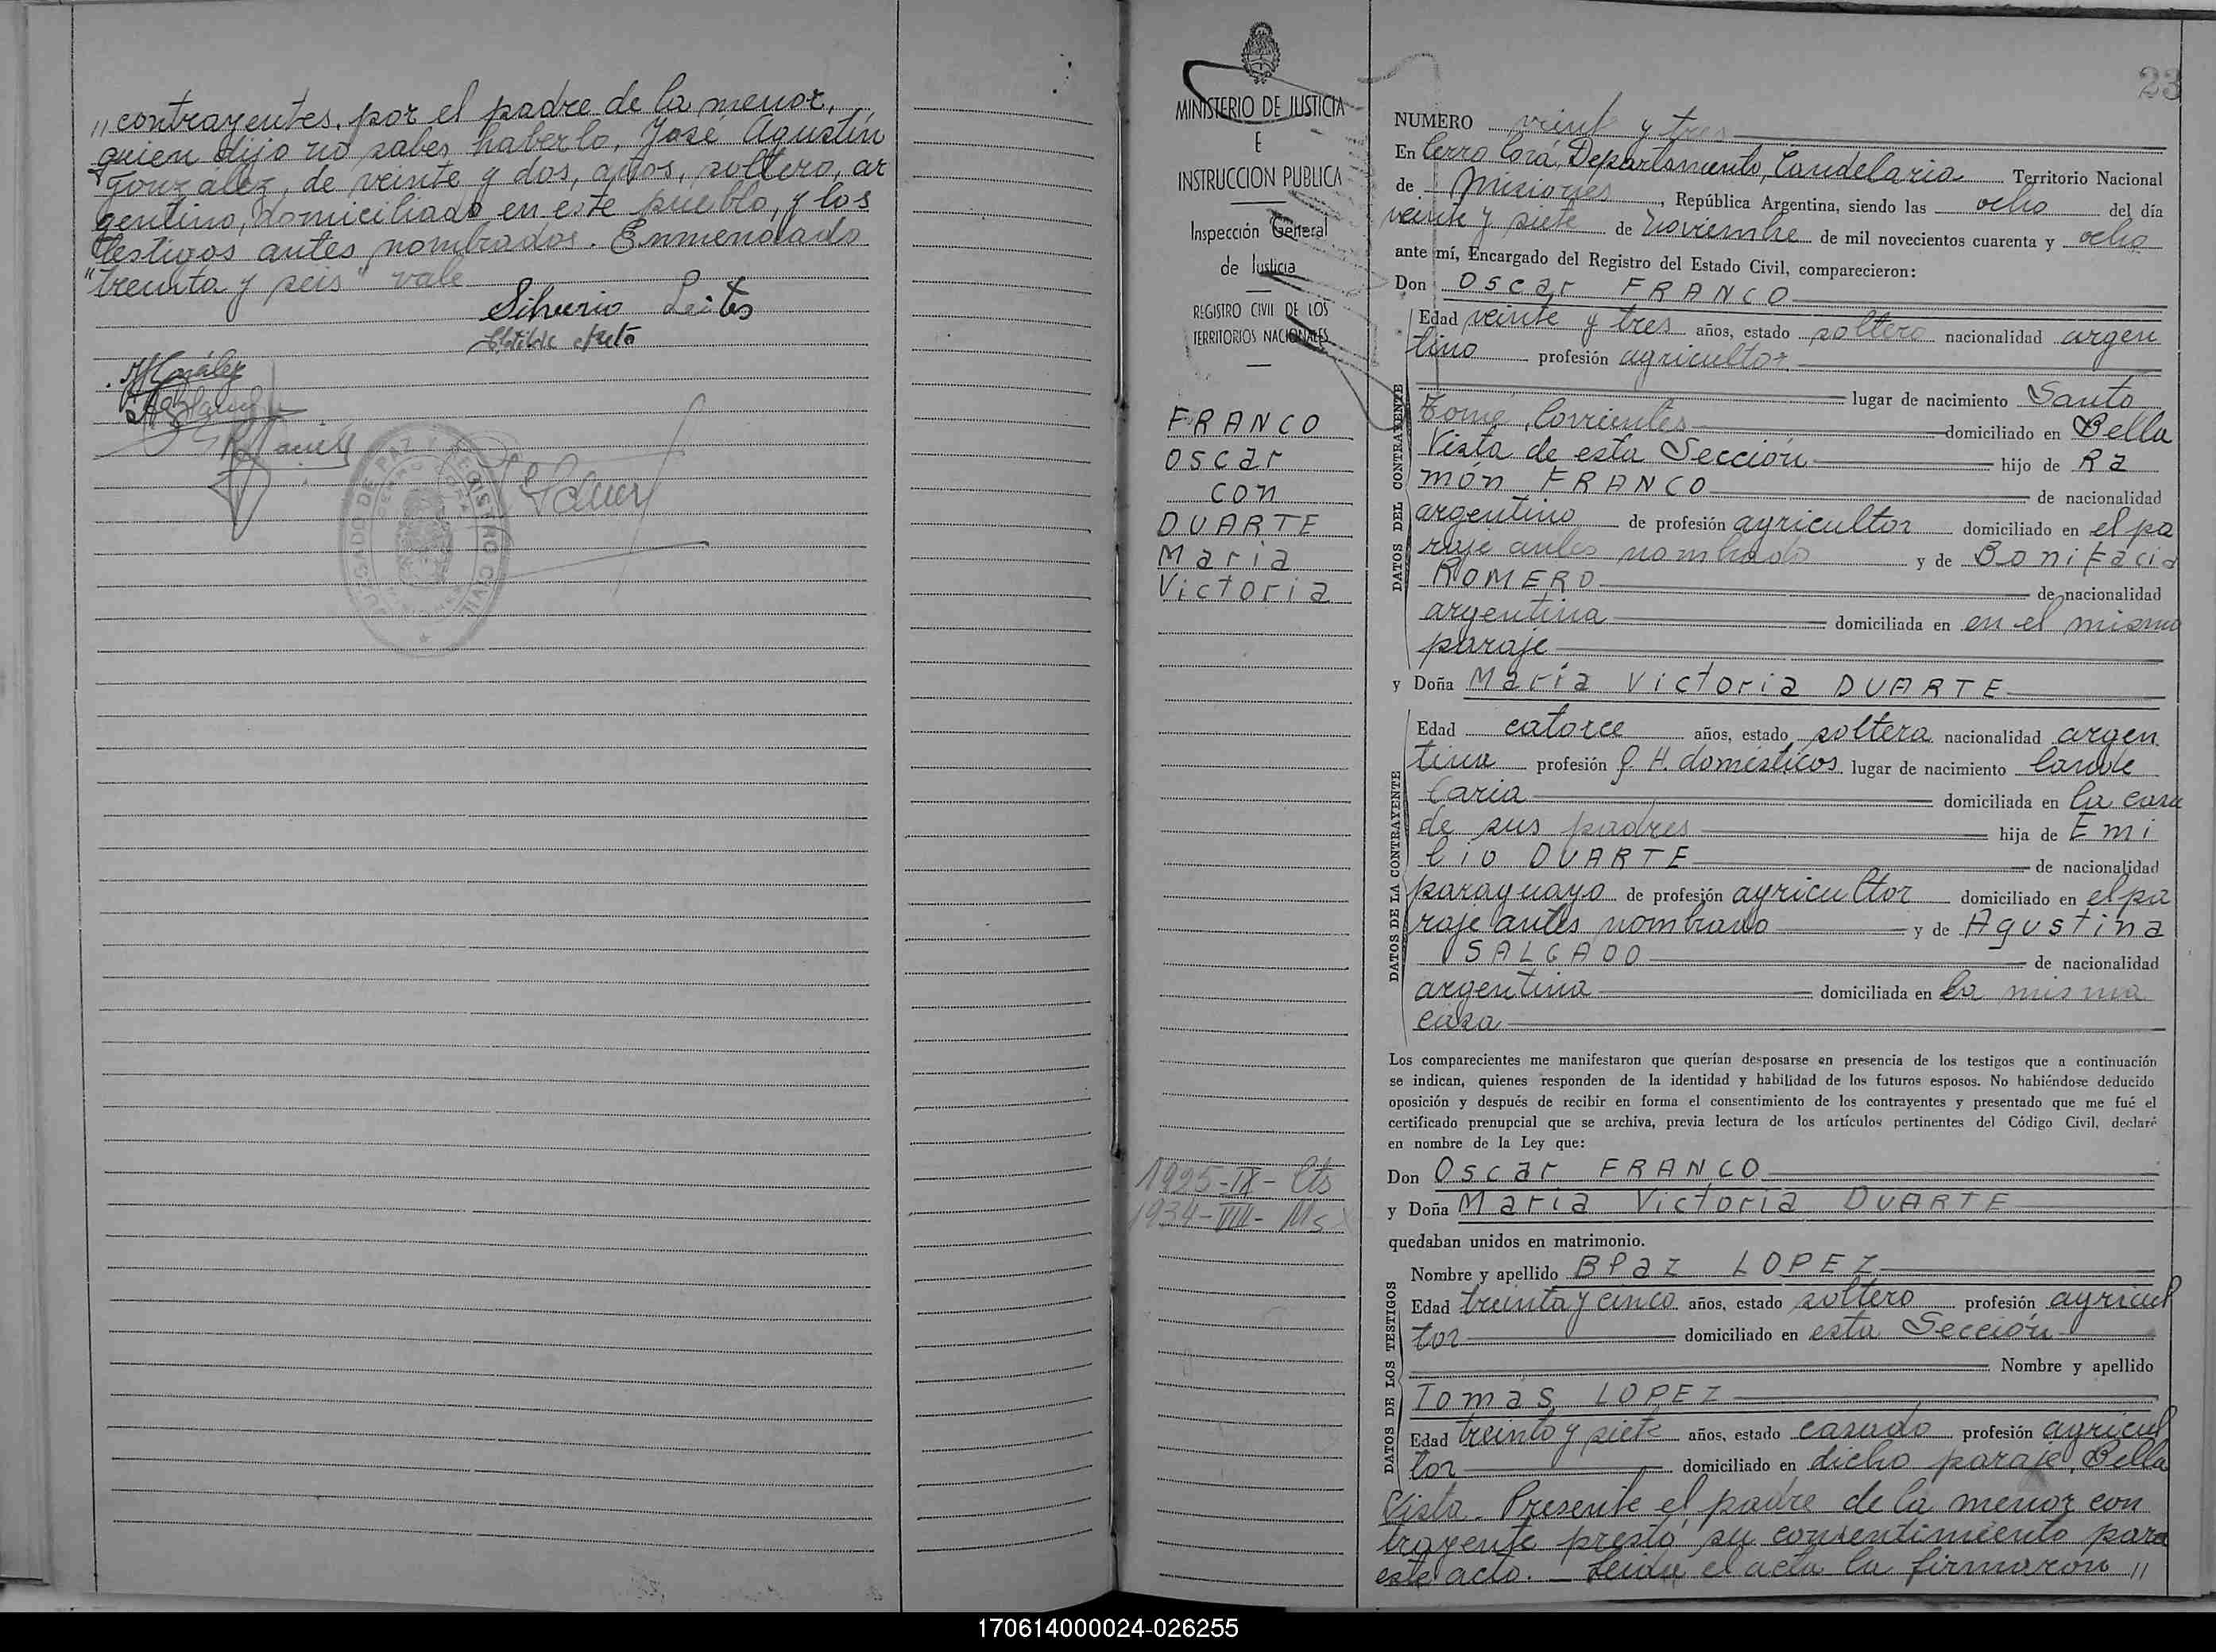 " contrayentes, por el padre de la menor,
quien dijo no saber haberlo, José Agustín
González, de veinte y dos, años, soltero, ar
gentino, domiciliado en este pueblo, y los
testigos antes nombrados. Enmendado
"treinta y seis" vale
Silverio Leites
REGISTRO CIVIL
MINISTERIO DE JUSTICIA
E
INSTRUCCION PUBLICA
Inspección General
de Justicia
REGISTRO CIVIL DE LOS
TERRITORIOS NACIONALES
FRANCO
Oscar
con
DUARTE
María
Victoria
1925-IX- Cts
1934-VIII- Ms
23
NUMERO veinte y tres
En Cerro Corá, Departamento, Candelaria Territorio Nacional
de Misiones, República Argentina, siendo las ocho del día
veinte y siete de noviembre de mil novecientos cuarenta y ocho
ante mí, Encargado del Registro del Estado Civil, comparecieron:
Don Oscar FRANCO
DATOS DEL CONTRAYENTE
Edad veinte y tres años, estado soltero nacionalidad argen
tino profesión agricultor
lugar de nacimiento Santo
Tomé, Corrientes domiciliado en Bella
Vista de esta Sección hijo de Ra
món FRANCO de nacionalidad
argentino de profesión agricultor domiciliado en el pa
raje antes nombrado y de Bonifacia
ROMERO de nacionalidad
argentina domiciliada en en el mismo
paraje
y Doña María Victoria DUARTE
DATOS DE LA CONTRAYENTE
Edad catorce años, estado soltera nacionalidad argen
tina profesión Q H. domésticos lugar de nacimiento Cande
laria domiciliada en la casa
de sus padres hija de Emi
lio DUARTE de nacionalidad
paraguayo de profesión agricultor domiciliado en el pa
raje antes nombrado y de Agustina
SALGADO de nacionalidad
argentina domiciliada en la misma
casa
Los comparecientes me manifestaron que querían desposarse en presencia de los testigos que a continuación
se indican, quienes responden de la identidad y habilidad de los futuros esposos. No habiéndose deducido
oposición y después de recibir en forma el consentimiento de los contrayentes y presentado que me fué el
certificado prenupcial que se archiva, previa lectura de los artículos pertinentes del Código Civil, declaré
en nombre de la Ley que:
Don Oscar FRANCO
y Doña María Victoria DUARTE
quedaban unidos en matrimonio.
DATOS DE LOS TESTIGOS
Nombre y apellido Blaz LOPEZ
Edad treinta y cinco años, estado soltero profesión agricul
tor domiciliado en esta Sección
Nombre y apellido
Tomas LOPEZ
Edad treinta y siete años, estado casado profesión agricul
tor domiciliado en dicho paraje, Bella
Vista. Presente el padre de la menor con
trayente prestó su consentimiento para
este acto. — Leida el acta la firmaron "
170614000024-026255